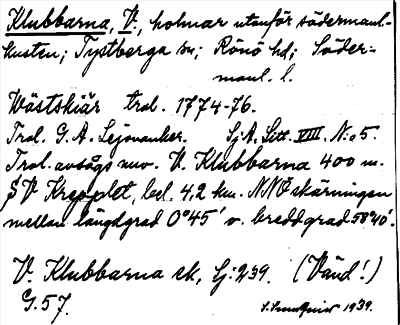 Klubbarna, V., holmar utanför södermanl-
kusten; Tystberga sn; Rönö hd; Söder-
manl. l.
Wästskiär trol. 1774-76.
Trol. G. A. Lejonanker. Sj. A. Litt. VIII. N:o 5.
Trol. avsågs nuv. V. Klubbarna 400 m.
SV Krepplet, bel. 4,2 km. NNÖ skärningen
mellan längdgrad 0°45' v. breddgrad 58°40'.
V. Klubbarna ek, Gj: 239. (Vänd!)
G. 57. 1939.